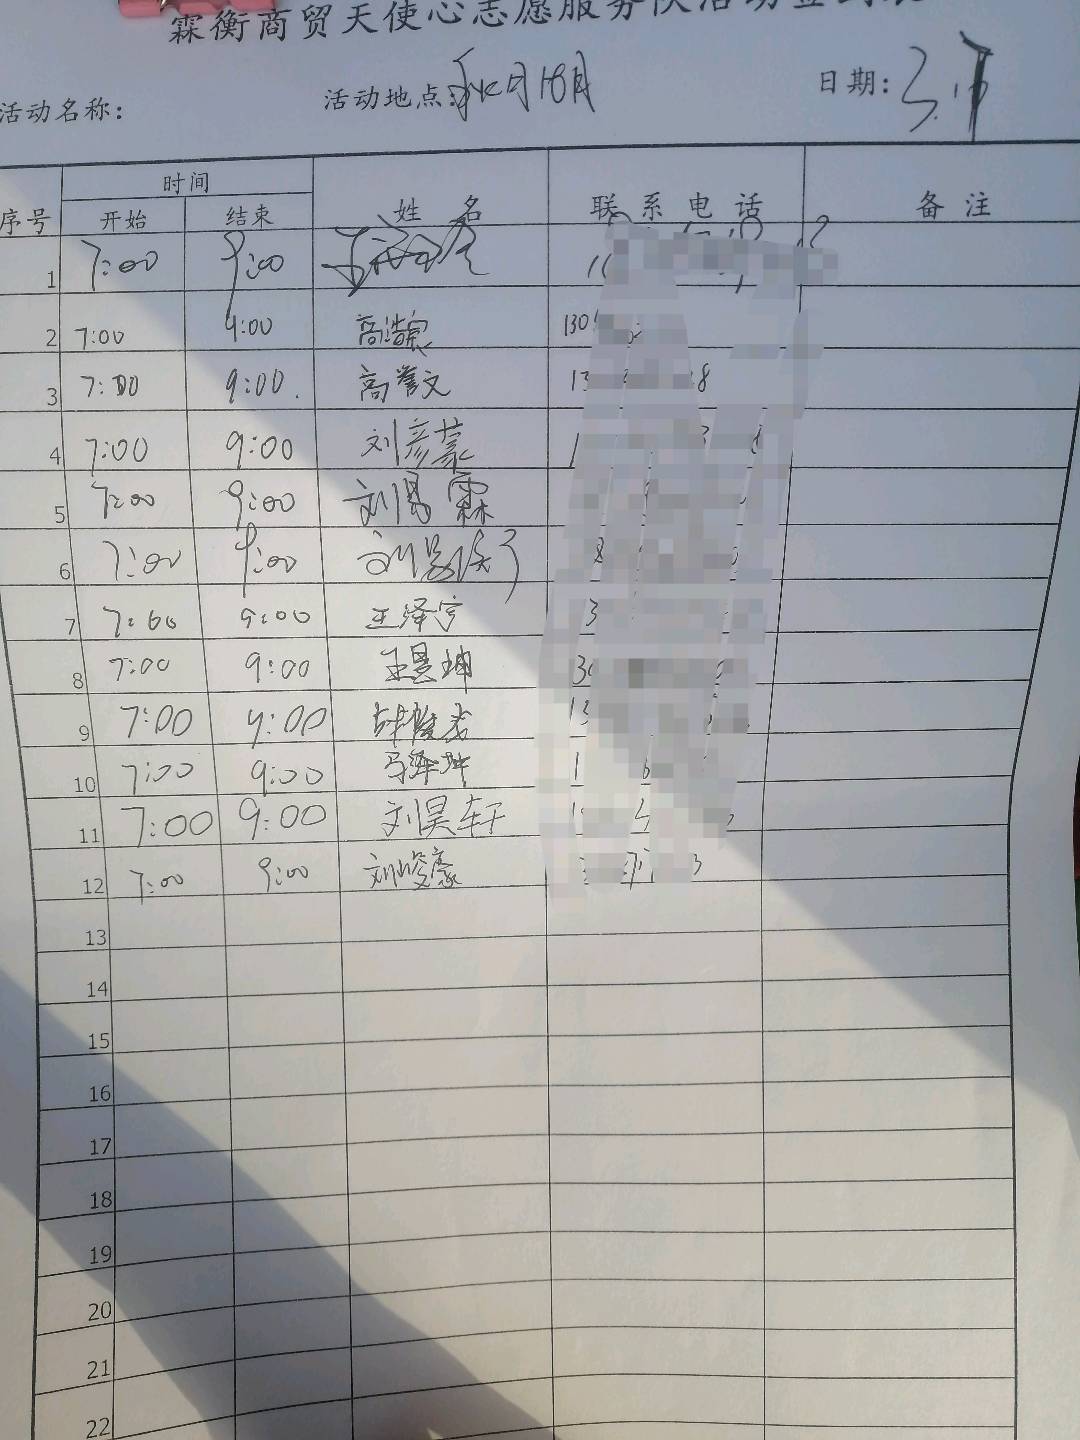 霖衡商贸天使心志愿服务队活动签到表
活动名称: 活动地点: 日期: 3.
序号 时间 姓 名 联 系 电 话 备 注
开始 结束
1 7:00 9:00
2 7:00 9:00 高浩宸 130
3 7:00 9:00. 高誉文 13 8
4 7:00 9:00 刘彦蒙 1
5 7:00 9:00 刘易霖
6 7:00 9:00 8
7 7:00 9:00 王泽宇 3
8 7:00 9:00 王昱坤 3
9 7:00 9:00 13
10 7:00 9:00 马泽坤 1 6
11 7:00 9:00 刘昊轩 1
12 7:00 9:00 刘峻豪 3
13
14
15
16
17
18
19
20
21
22